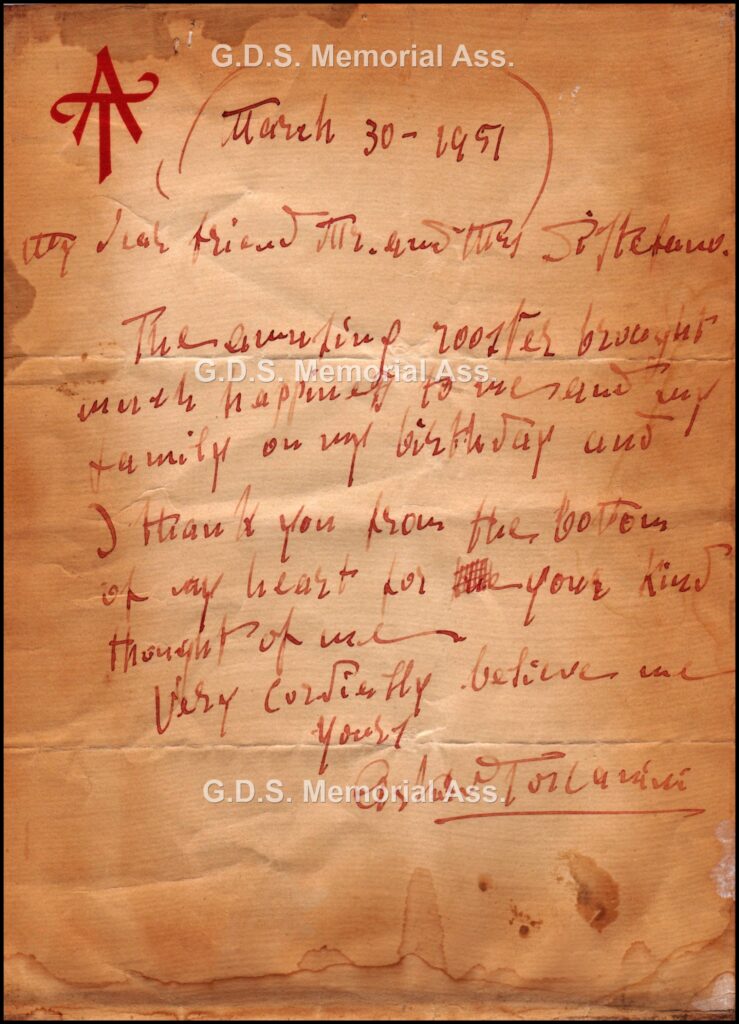 G.D.S. Memorial Ass.
AT
(March 30 - 1951)
My dear friend Mr. and Mrs Di Stefano.
The amusing rooster brought
G.D.S. Memorial Ass.
much happiness to me and my
family on my birthday and
I thank you from the bottom
of my heart for your kind
thought of me
Very cordially believe me
yours
G.D.S. Memorial Ass.
Arturo Toscanini